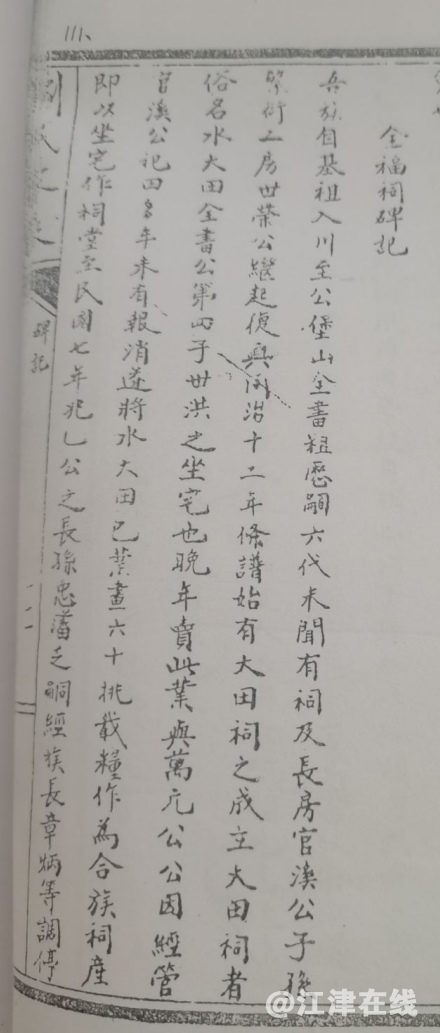 111.
全福祠碑記
吾族自基祖入川至公堡山全書祖歷嗣六代未聞有祠及長房官溪公子孫
繁衍二房世榮公繼起復興同治十二年條譜始有大田祠之成立大田祠者
俗名水大田全書公第四子世洪之坐宅也晚年賣此業與萬元公公因經管
官溪公祀田多年未有報消遂將水大田已業畫六十挑載糧作為合族祠產
即以坐宅作祠堂至民国七年兆乙公之長孫忠藩乏嗣經族長章炳等調停
碑記
@江津在线